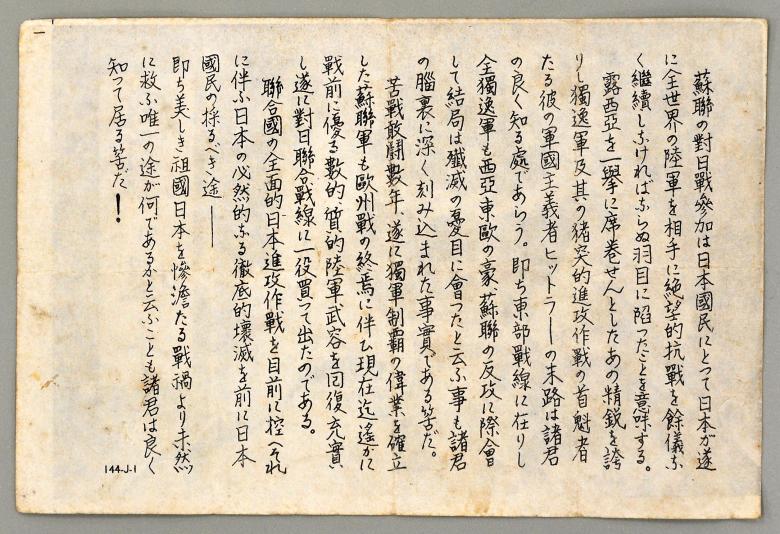 蘇聯の對日戰參加は日本國民にとつて日本が遂
に全世界の陸軍を相手に絶望的抗戰を餘儀な
く繼續しなければならぬ羽目に陷つたことを意味する。
露西亞を一擧に席巻せんとしたあの精鋭を誇
りし獨逸軍及其の猪突的進攻作戰の首魁者
たる彼の軍國主義者ヒットラーの末路は諸君
の良く知る處であらう。即ち東部戰線に在りし
全獨逸軍も西亞東歐の豪、蘇聯の反攻に際會
して結局は殲滅の憂目に會つたと云ふ事も諸君
の腦裏に深く刻み込まれた事實である筈だ。
苦戰敢鬪數年、遂に獨軍制覇の偉業を確立
した蘇聯軍も歐州戰の終焉に伴ひ現在迄遙かに
戰前に優る數的、質的陸軍武容を回復充實
し遂に對日聯合戰線に一役買つて出たのである。
聯合國の全面的日本進攻作戰を目前に控へそれ
に伴ふ日本の必然的なる徹底的壞滅を前に日本
國民の採るべき途——
即ち美しき祖國日本を慘澹たる戰禍より未然
に救ふ唯一の途が何であるかと云ふことも諸君は良く
知つて居る筈だ！
144-J-1
一